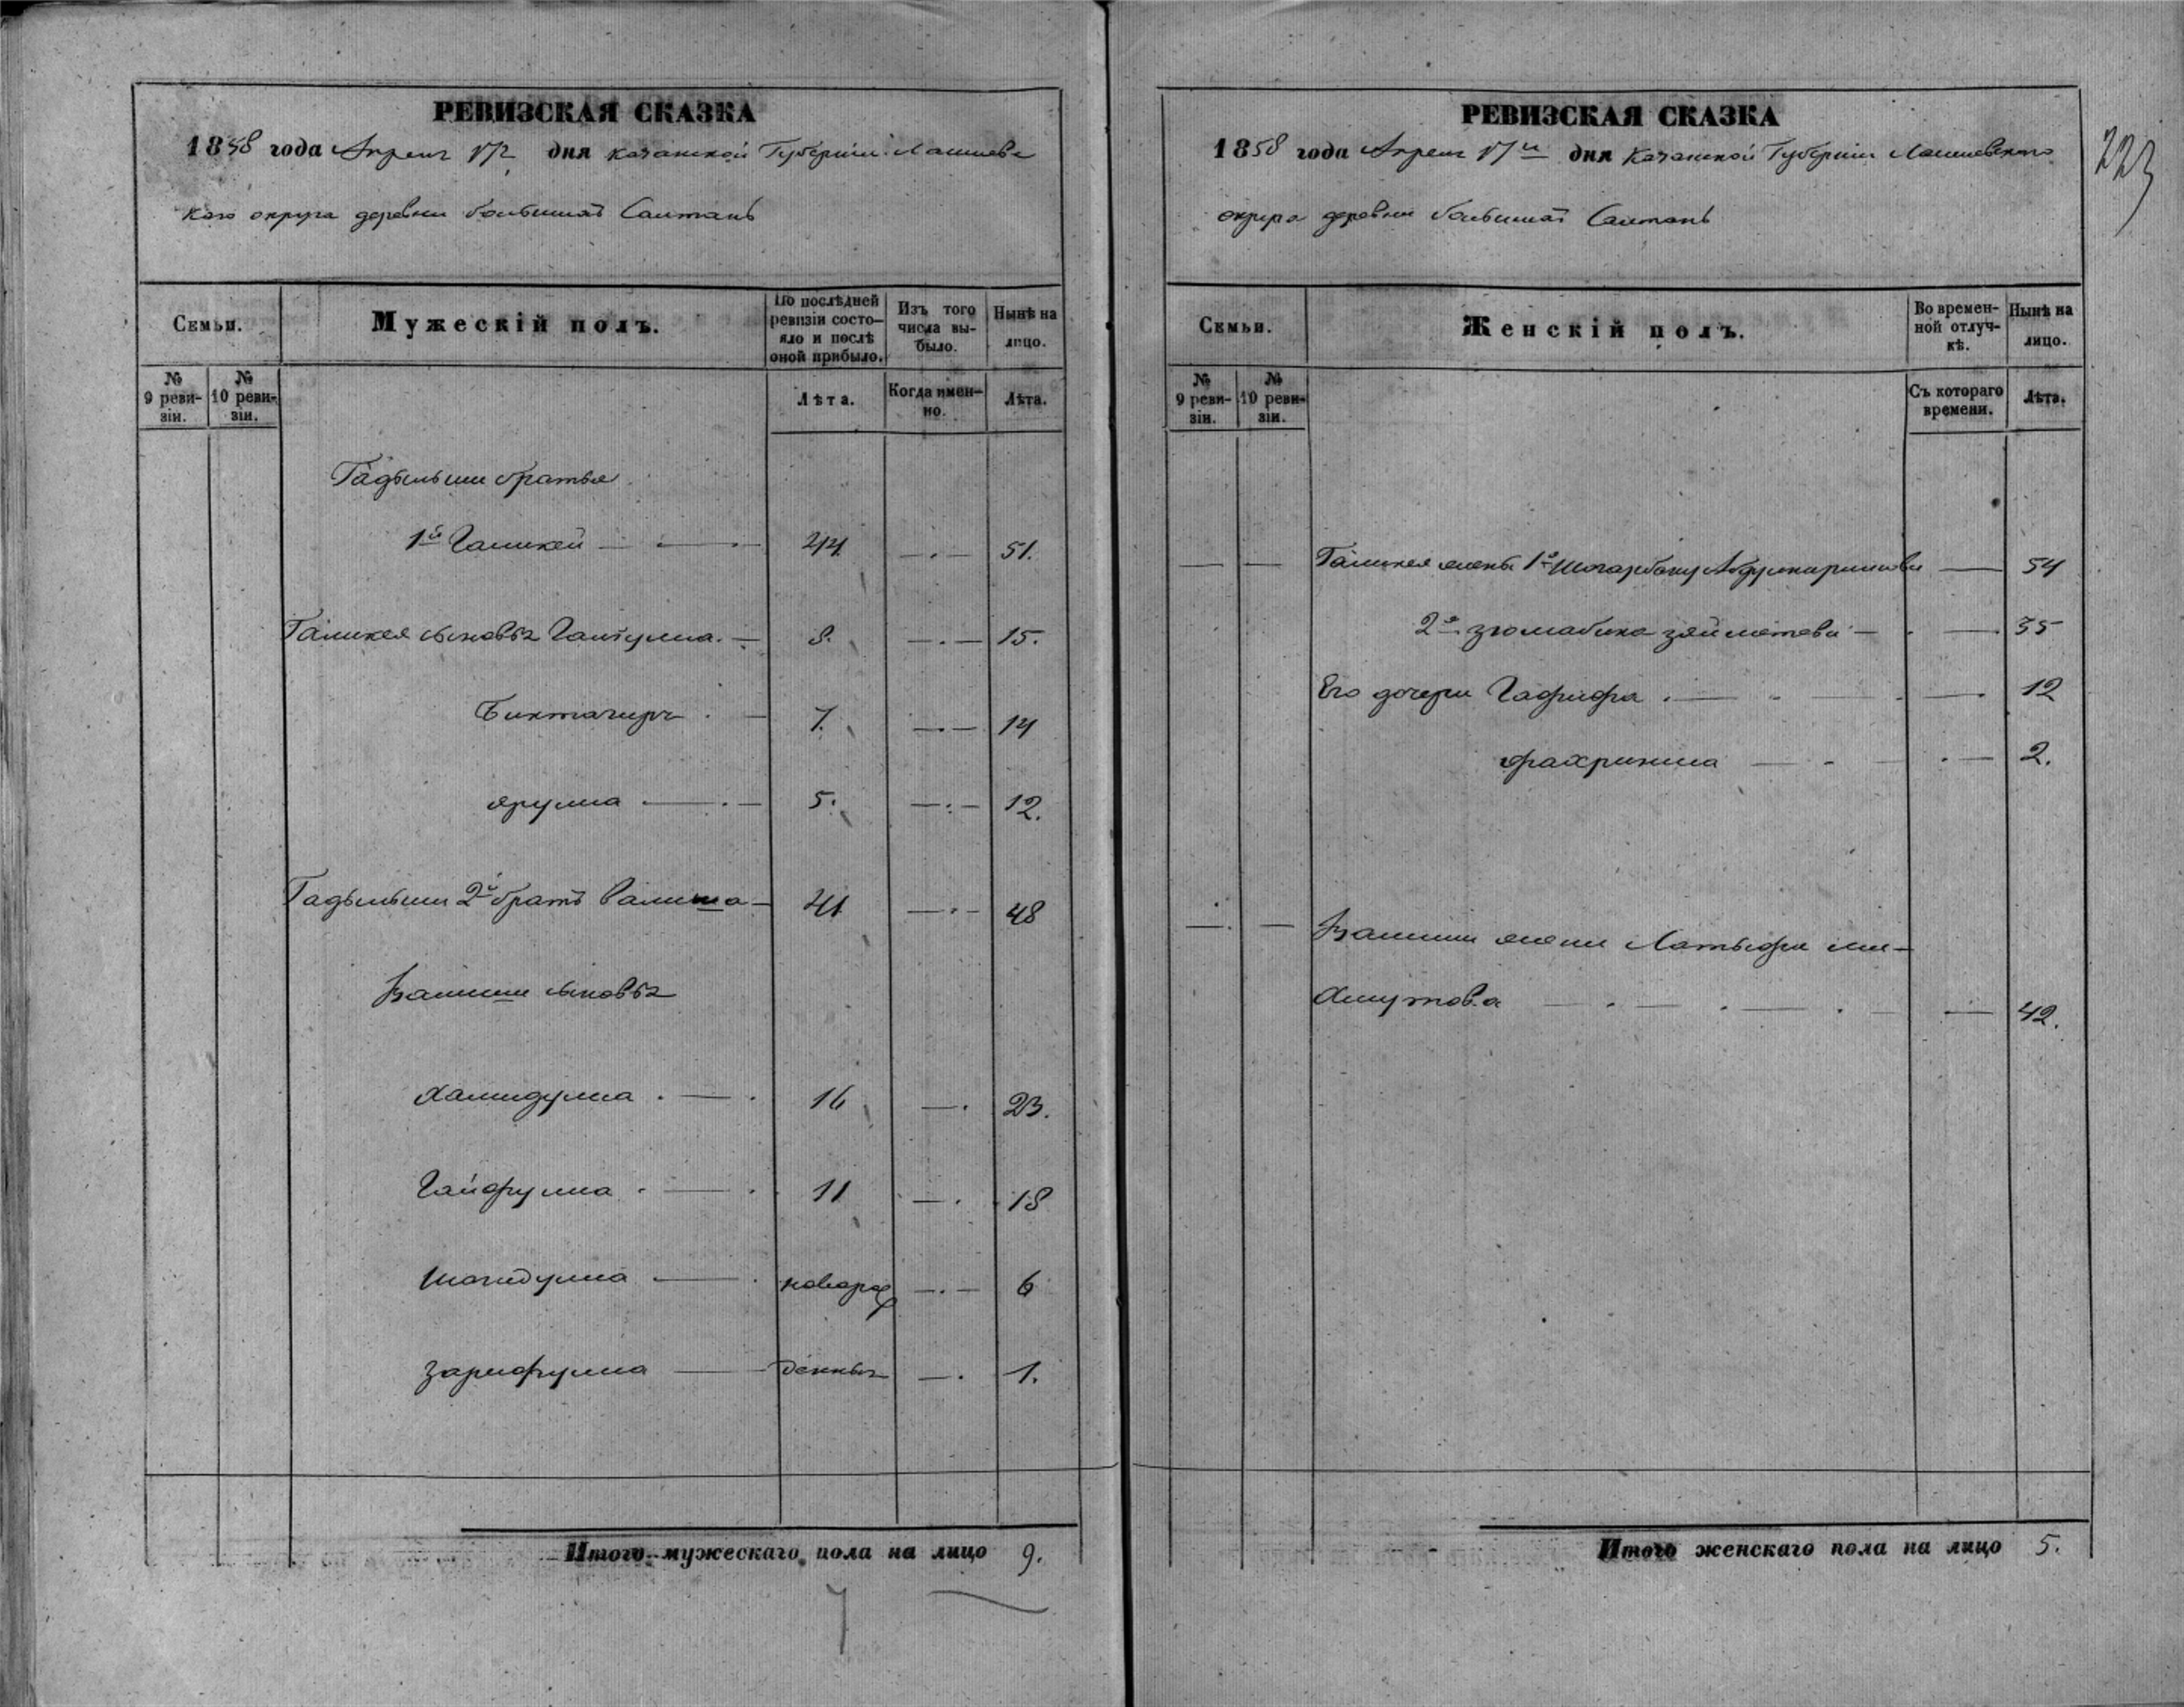 РЕВИЗСКАЯ СКАЗКА
1858 года Апреля дня Казанской Губерніи Лаишевс
каго округа деревни большихъ Салтанъ
Семьи.
Мужескій полъ.
По послѣдней ревизіи состояло и послѣ оной прибыло.
Изъ того числа выбыло.
Нынѣ на лицо.
№ 9 ревизіи.
№ 10 ревизіи.
Лѣта.
Когда именно.
Лѣта.
братья
1й Галикей 44 51.
Галикея сыновья 8. 15.
Биктагиръ 7. 14
Ярулла 5. 12.
2й братъ Валиша 41 48
Валиши сыновья
Хамидулла 16 23.
Гайфулла 11 18
Шагидулла новорож 6
Зарифулла денны 1.
Итого мужескаго пола на лицо 9.
7
РЕВИЗСКАЯ СКАЗКА
1858 года Апреля дня Казанской Губерніи Лаишевскаго
округа деревни большихъ Салтанъ
223
Семьи.
Женскій полъ.
Во временной отлучкѣ.
Нынѣ на лицо.
№ 9 ревизіи.
№ 10 ревизіи.
Съ котораго времени.
Лѣта.
Галикея жены 1я 54
2я 35
Его дочери Гафифа 12
2.
Валиши жена Латыфа
42.
Итого женскаго пола на лицо 5.